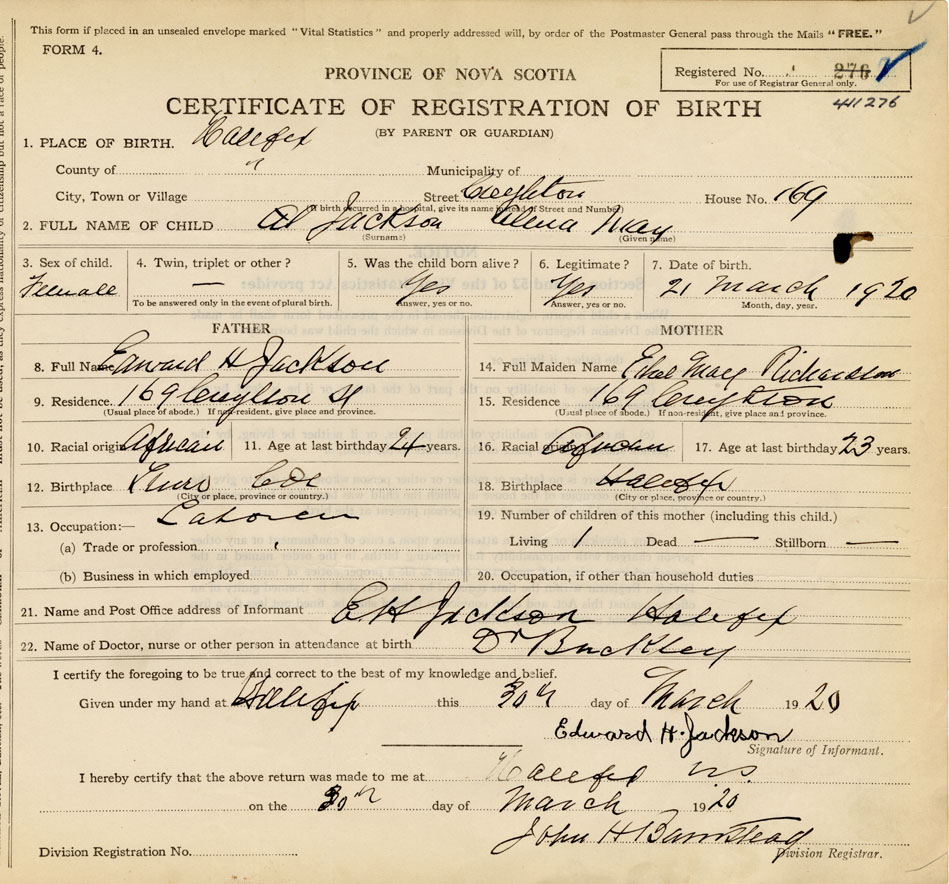 This form if placed in an unsealed envelope marked "Vital Statistics" and properly addressed will, by order of the Postmaster General pass through the Mails "FREE."
FORM 4.
PROVINCE OF NOVA SCOTIA
Registered No. 276
For use of Registrar General only.
411276
CERTIFICATE OF REGISTRATION OF BIRTH
(BY PARENT OR GUARDIAN)
1. PLACE OF BIRTH. Halifax
County of " Municipality of
City, Town or Village Street Creighton House No. 169
(If birth occurred in a hospital, give its name instead of Street and Number)
2. FULL NAME OF CHILD Jackson May
(Surname) (Given name)
3. Sex of child. 4. Twin, triplet or other? 5. Was the child born alive? 6. Legitimate? 7. Date of birth.
Female — Yes Yes 21 March 1920
To be answered only in the event of plural birth. Answer, yes or no. Answer, yes or no. Month, day, year.
FATHER MOTHER
8. Full Name Edward H Jackson 14. Full Maiden Name May Richardson
9. Residence. 169 Creighton St 15. Residence 169 Creighton
(Usual place of abode.) If non-resident, give place and province. (Usual place of abode.) If non-resident, give place and province.
10. Racial origin African 11. Age at last birthday 24 years. 16. Racial origin African 17. Age at last birthday 23 years.
12. Birthplace Truro Col 18. Birthplace Halifax
(City or place, province or country.) (City or place, province or country.)
13. Occupation:— Laborer 19. Number of children of this mother (including this child.)
(a) Trade or profession Living 1 Dead — Stillborn —
(b) Business in which employed 20. Occupation, if other than household duties
21. Name and Post Office address of Informant E H Jackson Halifax
22. Name of Doctor, nurse or other person in attendance at birth Dr Buckley
I certify the foregoing to be true and correct to the best of my knowledge and belief.
Given under my hand at Halifax this 30th day of March 1920
Edward H. Jackson
Signature of Informant.
I hereby certify that the above return was made to me at Halifax N.S.
on the 30th day of March 1920
John H Barnstead
Division Registration No. Division Registrar.